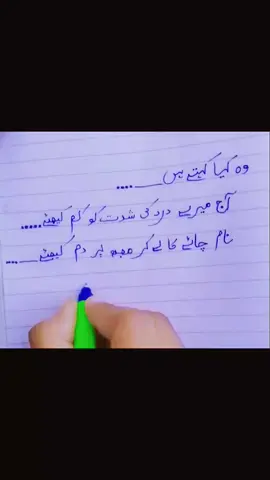 وہ کیا کہتے ہیں ___....
آج میرے درد کی شدت کو کم کیجئے.....
نام چائے کا لے کر مجھ پر دم کیجئے___....